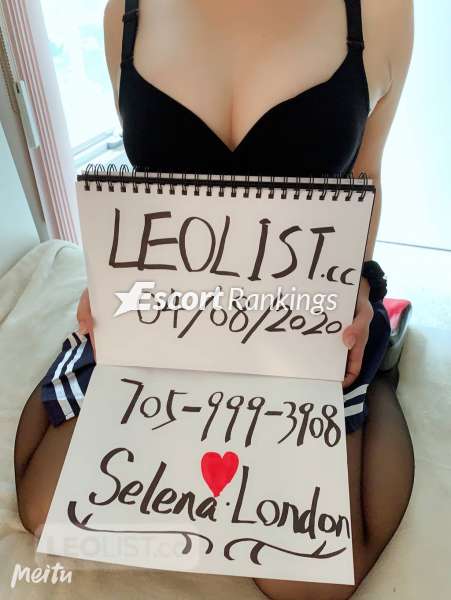 LEOLIST.cc
Escort Rankings
04/08/2020
705-999-3908
Selena.London
LEOLIST.cc
meitu